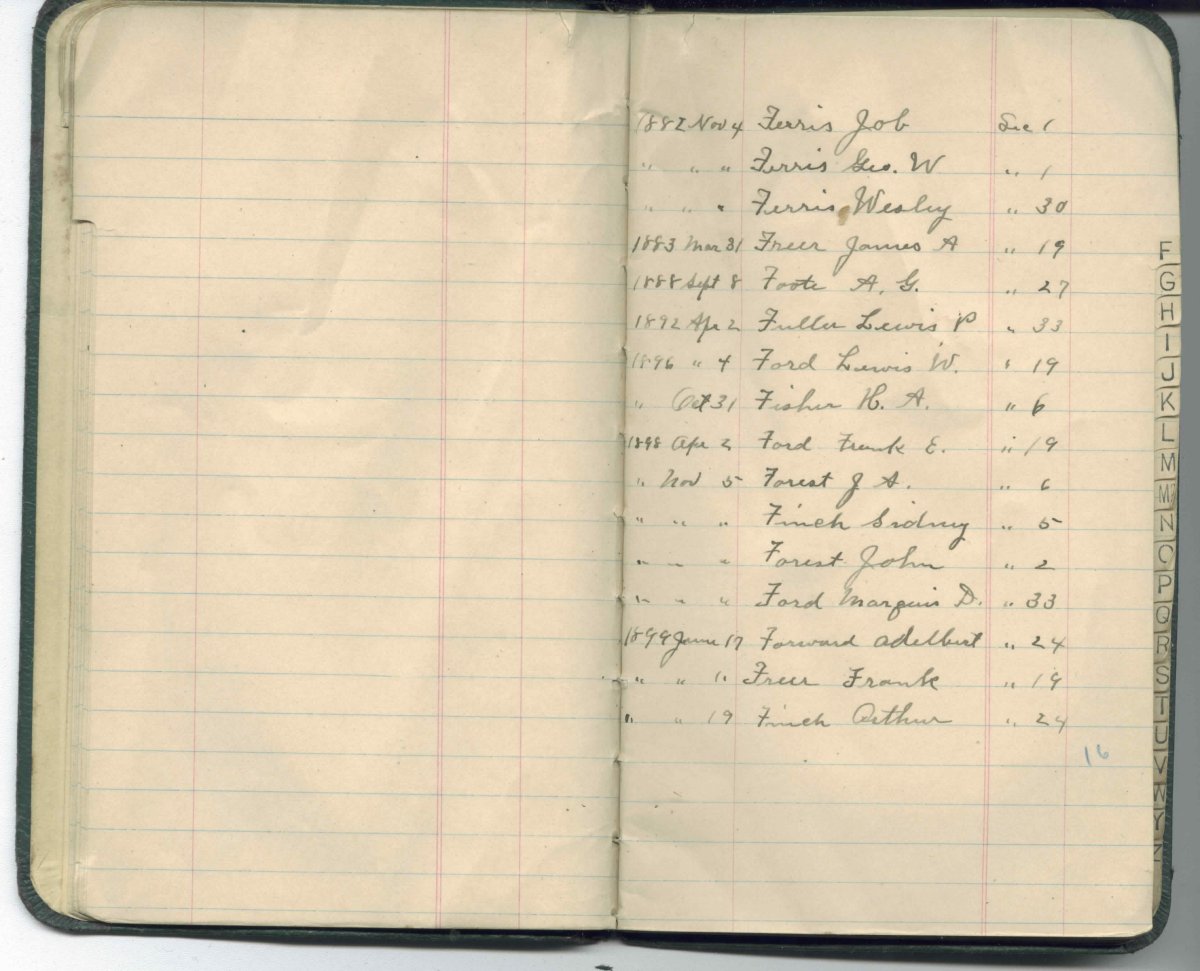 1882 Nov 4 Ferris Job Sec 1
" " " Ferris Geo. W " 1
" " " Ferris Wesley " 30
1883 Mar 31 Freer James A " 19
1888 Sept 8 Foote A. G. " 27
1892 Apr 2 Fuller Lewis P " 33
1896 " 4 Ford Lewis W. " 19
" Oct 31 Fisher H. A. " 6
1898 Apr 2 Ford Frank E. " 19
" Nov 5 Forest J A. " 6
" " " Finch Sidney " 5
" " " Forest John " 2
" " " Ford Marquis D. " 33
1899 June 17 Forward Adelbert " 24
" " " Freer Frank " 19
" " 19 Finch Arthur " 24
16
F
G
H
I
J
K
L
M
N
O
P
Q
R
S
T
U
V
W
Y
Z